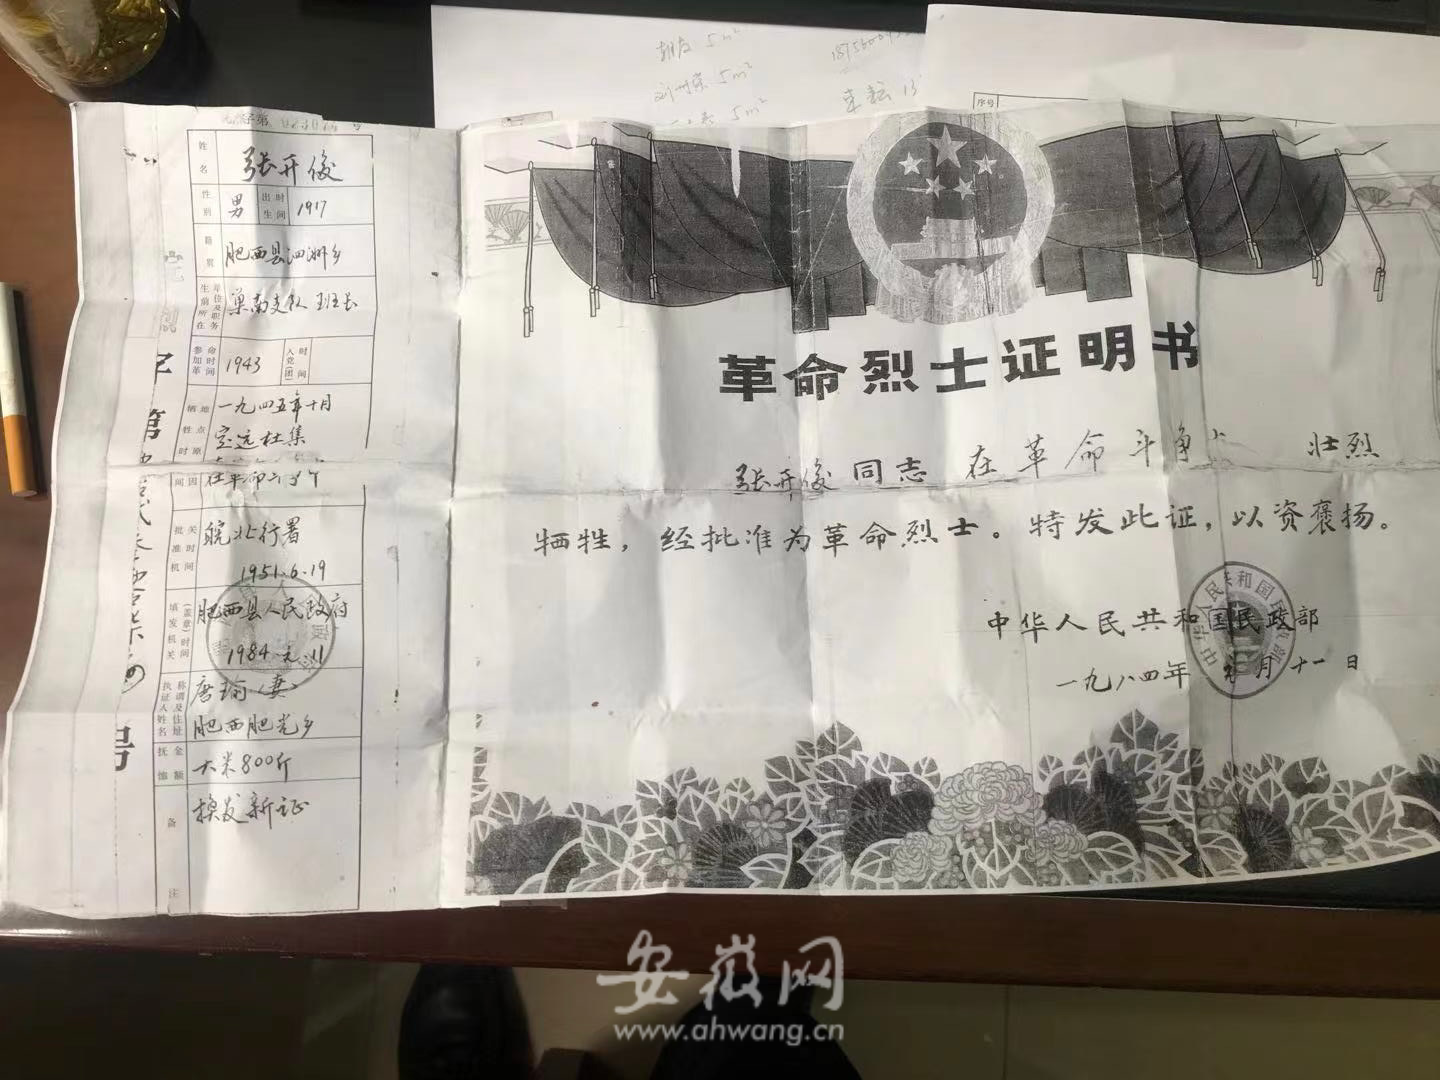 5m²
5m²
5m²
序号
姓名
张开俊
性别
男
出生时间
1917
籍贯
肥西县泗洲乡
生前所在单位及职务
巢南支队 班长
参加革命时间
1943
入党(团)时间
牺牲时间地点原因
一九四五年十月
定远杜集
批准机关时间
皖北行署
1951.6.19
填发机关(盖章)时间
肥西县人民政府
1984.元.11
执证人姓名称谓及住址
唐瑜(妻)
肥西肥光乡
抚恤金额
大米800斤
备注
换发新证
字
第
号
革命烈士证明书
张开俊同志 在革命斗争 壮烈
牺牲，经批准为革命烈士。特发此证，以资褒扬。
中华人民共和国民政部
一九八四年 元月十一日
中华人民共和国民政部
安徽网
www.ahwang.cn